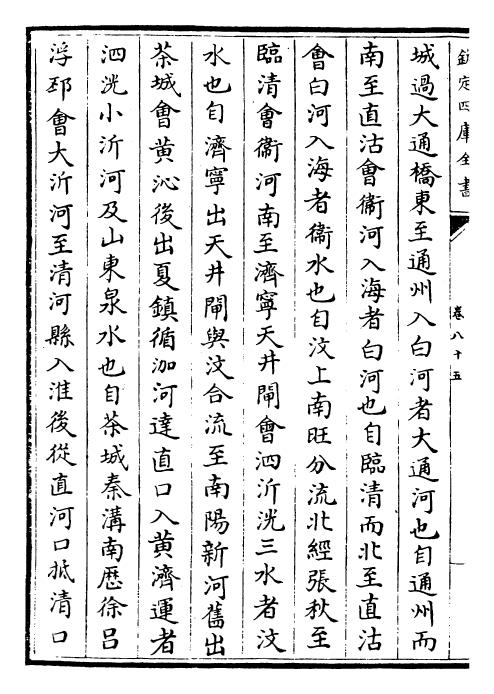 欽定四庫全書
卷八十五
城過大通橋東至通州入白河者大通河也自通州而
南至直沽會衞河入海者白河也自臨清而北至直沽
會白河入海者衞水也自汶上南旺分流北經張秋至
臨清會衞河南至濟寧天井閘會泗沂洸三水者汶
水也自濟寧出天井閘與汶合流至南陽新河舊出
茶城會黃沁後出夏鎮循泇河達直口入黃濟運者
泗洸小沂河及山東泉水也自茶城秦溝南歷徐呂
浮邳會大沂河至清河縣入淮後從直河口抵清口